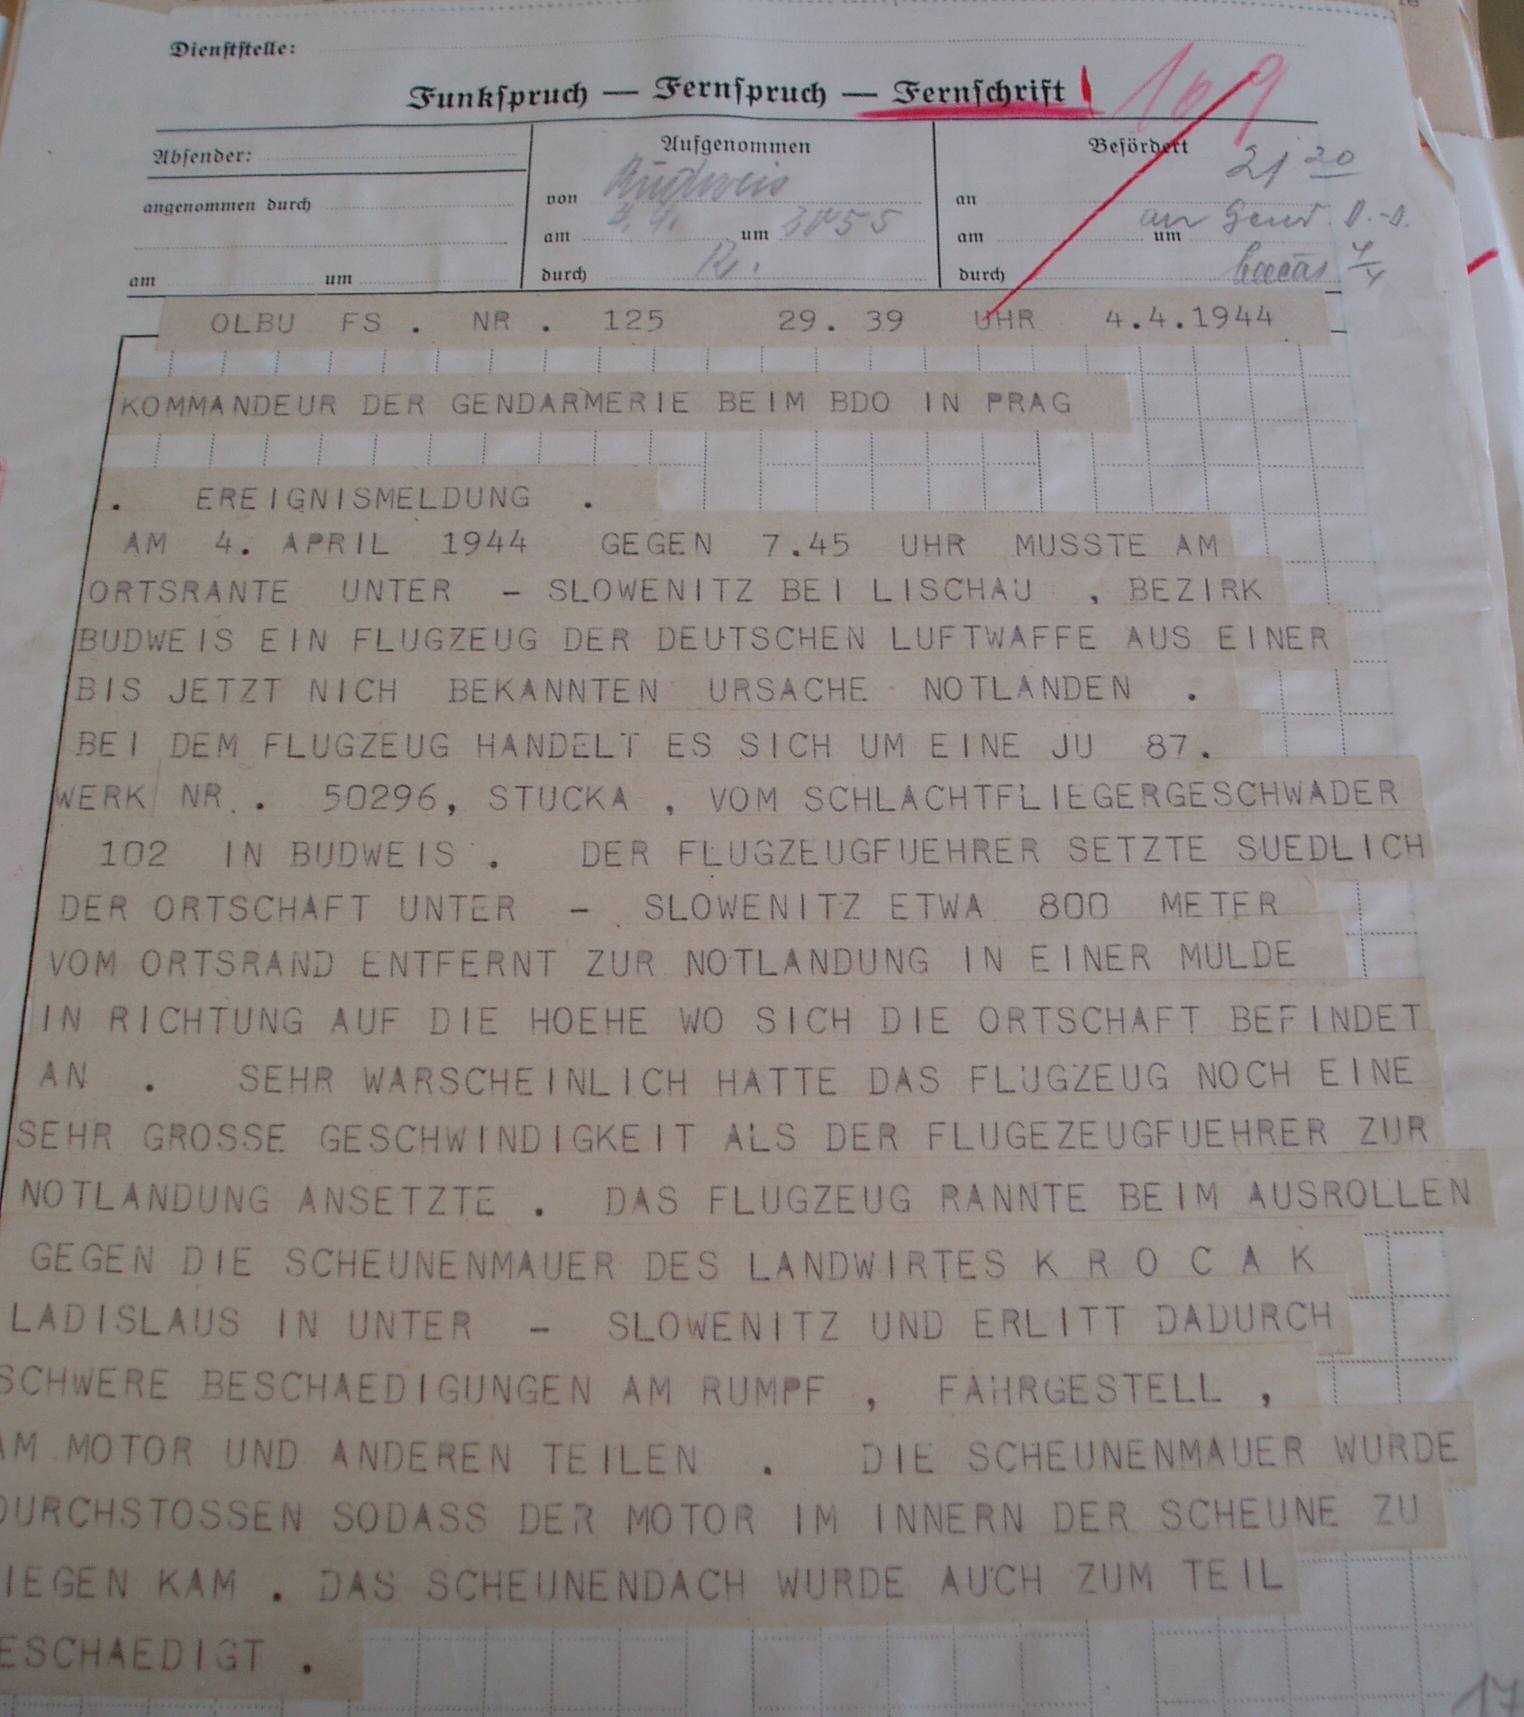 Dienststelle:
Funkspruch — Fernspruch — Fernschrift
109
Absender:
Aufgenommen
Befördert
21 20
angenommen durch
von Budweis
an
an Gend.
am 4.4. um 2055
am um
am um
durch
durch
4/4
OLBU FS . NR . 125 29. 39 UHR 4.4.1944
KOMMANDEUR DER GENDARMERIE BEIM BDO IN PRAG
. EREIGNISMELDUNG .
AM 4. APRIL 1944 GEGEN 7.45 UHR MUSSTE AM
ORTSRANTE UNTER - SLOWENITZ BEI LISCHAU , BEZIRK
BUDWEIS EIN FLUGZEUG DER DEUTSCHEN LUFTWAFFE AUS EINER
BIS JETZT NICH BEKANNTEN URSACHE NOTLANDEN .
BEI DEM FLUGZEUG HANDELT ES SICH UM EINE JU 87.
WERK NR . 50296, STUCKA , VOM SCHLACHTFLIEGERGESCHWADER
102 IN BUDWEIS . DER FLUGZEUGFUEHRER SETZTE SUEDLICH
DER ORTSCHAFT UNTER - SLOWENITZ ETWA 800 METER
VOM ORTSRAND ENTFERNT ZUR NOTLANDUNG IN EINER MULDE
IN RICHTUNG AUF DIE HOEHE WO SICH DIE ORTSCHAFT BEFINDET
AN . SEHR WARSCHEINLICH HATTE DAS FLUGZEUG NOCH EINE
SEHR GROSSE GESCHWINDIGKEIT ALS DER FLUGEZEUGFUEHRER ZUR
NOTLANDUNG ANSETZTE . DAS FLUGZEUG RANNTE BEIM AUSROLLEN
GEGEN DIE SCHEUNENMAUER DES LANDWIRTES K R O C A K
LADISLAUS IN UNTER - SLOWENITZ UND ERLITT DADURCH
SCHWERE BESCHAEDIGUNGEN AM RUMPF , FAHRGESTELL ,
AM MOTOR UND ANDEREN TEILEN . DIE SCHEUNENMAUER WURDE
DURCHSTOSSEN SODASS DER MOTOR IM INNERN DER SCHEUNE ZU
IEGEN KAM . DAS SCHEUNENDACH WURDE AUCH ZUM TEIL
ESCHAEDIGT .
17